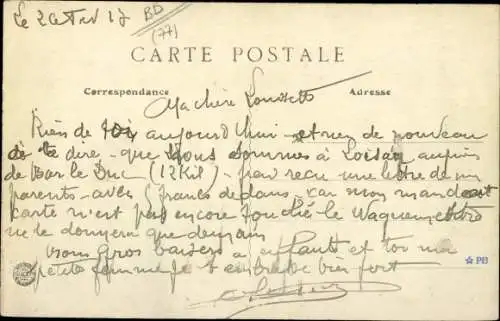 Le 2 Avr 17
BD
(77)
CARTE POSTALE
Correspondance
Adresse
Ma chère Louisette
Rien de toi aujourd'hui et rien de nouveau
à te dire - que nous sommes à auprès
de Bar le Duc (12 Kil) - pas recu une lettre de mes
parents - avec 5 francs dedans - car mon mandat
carte n'est pas encore touché le
ne le donnera que demain
Bons Gros baisers a enfant et toi ma
petite femme je t'embrasse bien fort
☆ PB